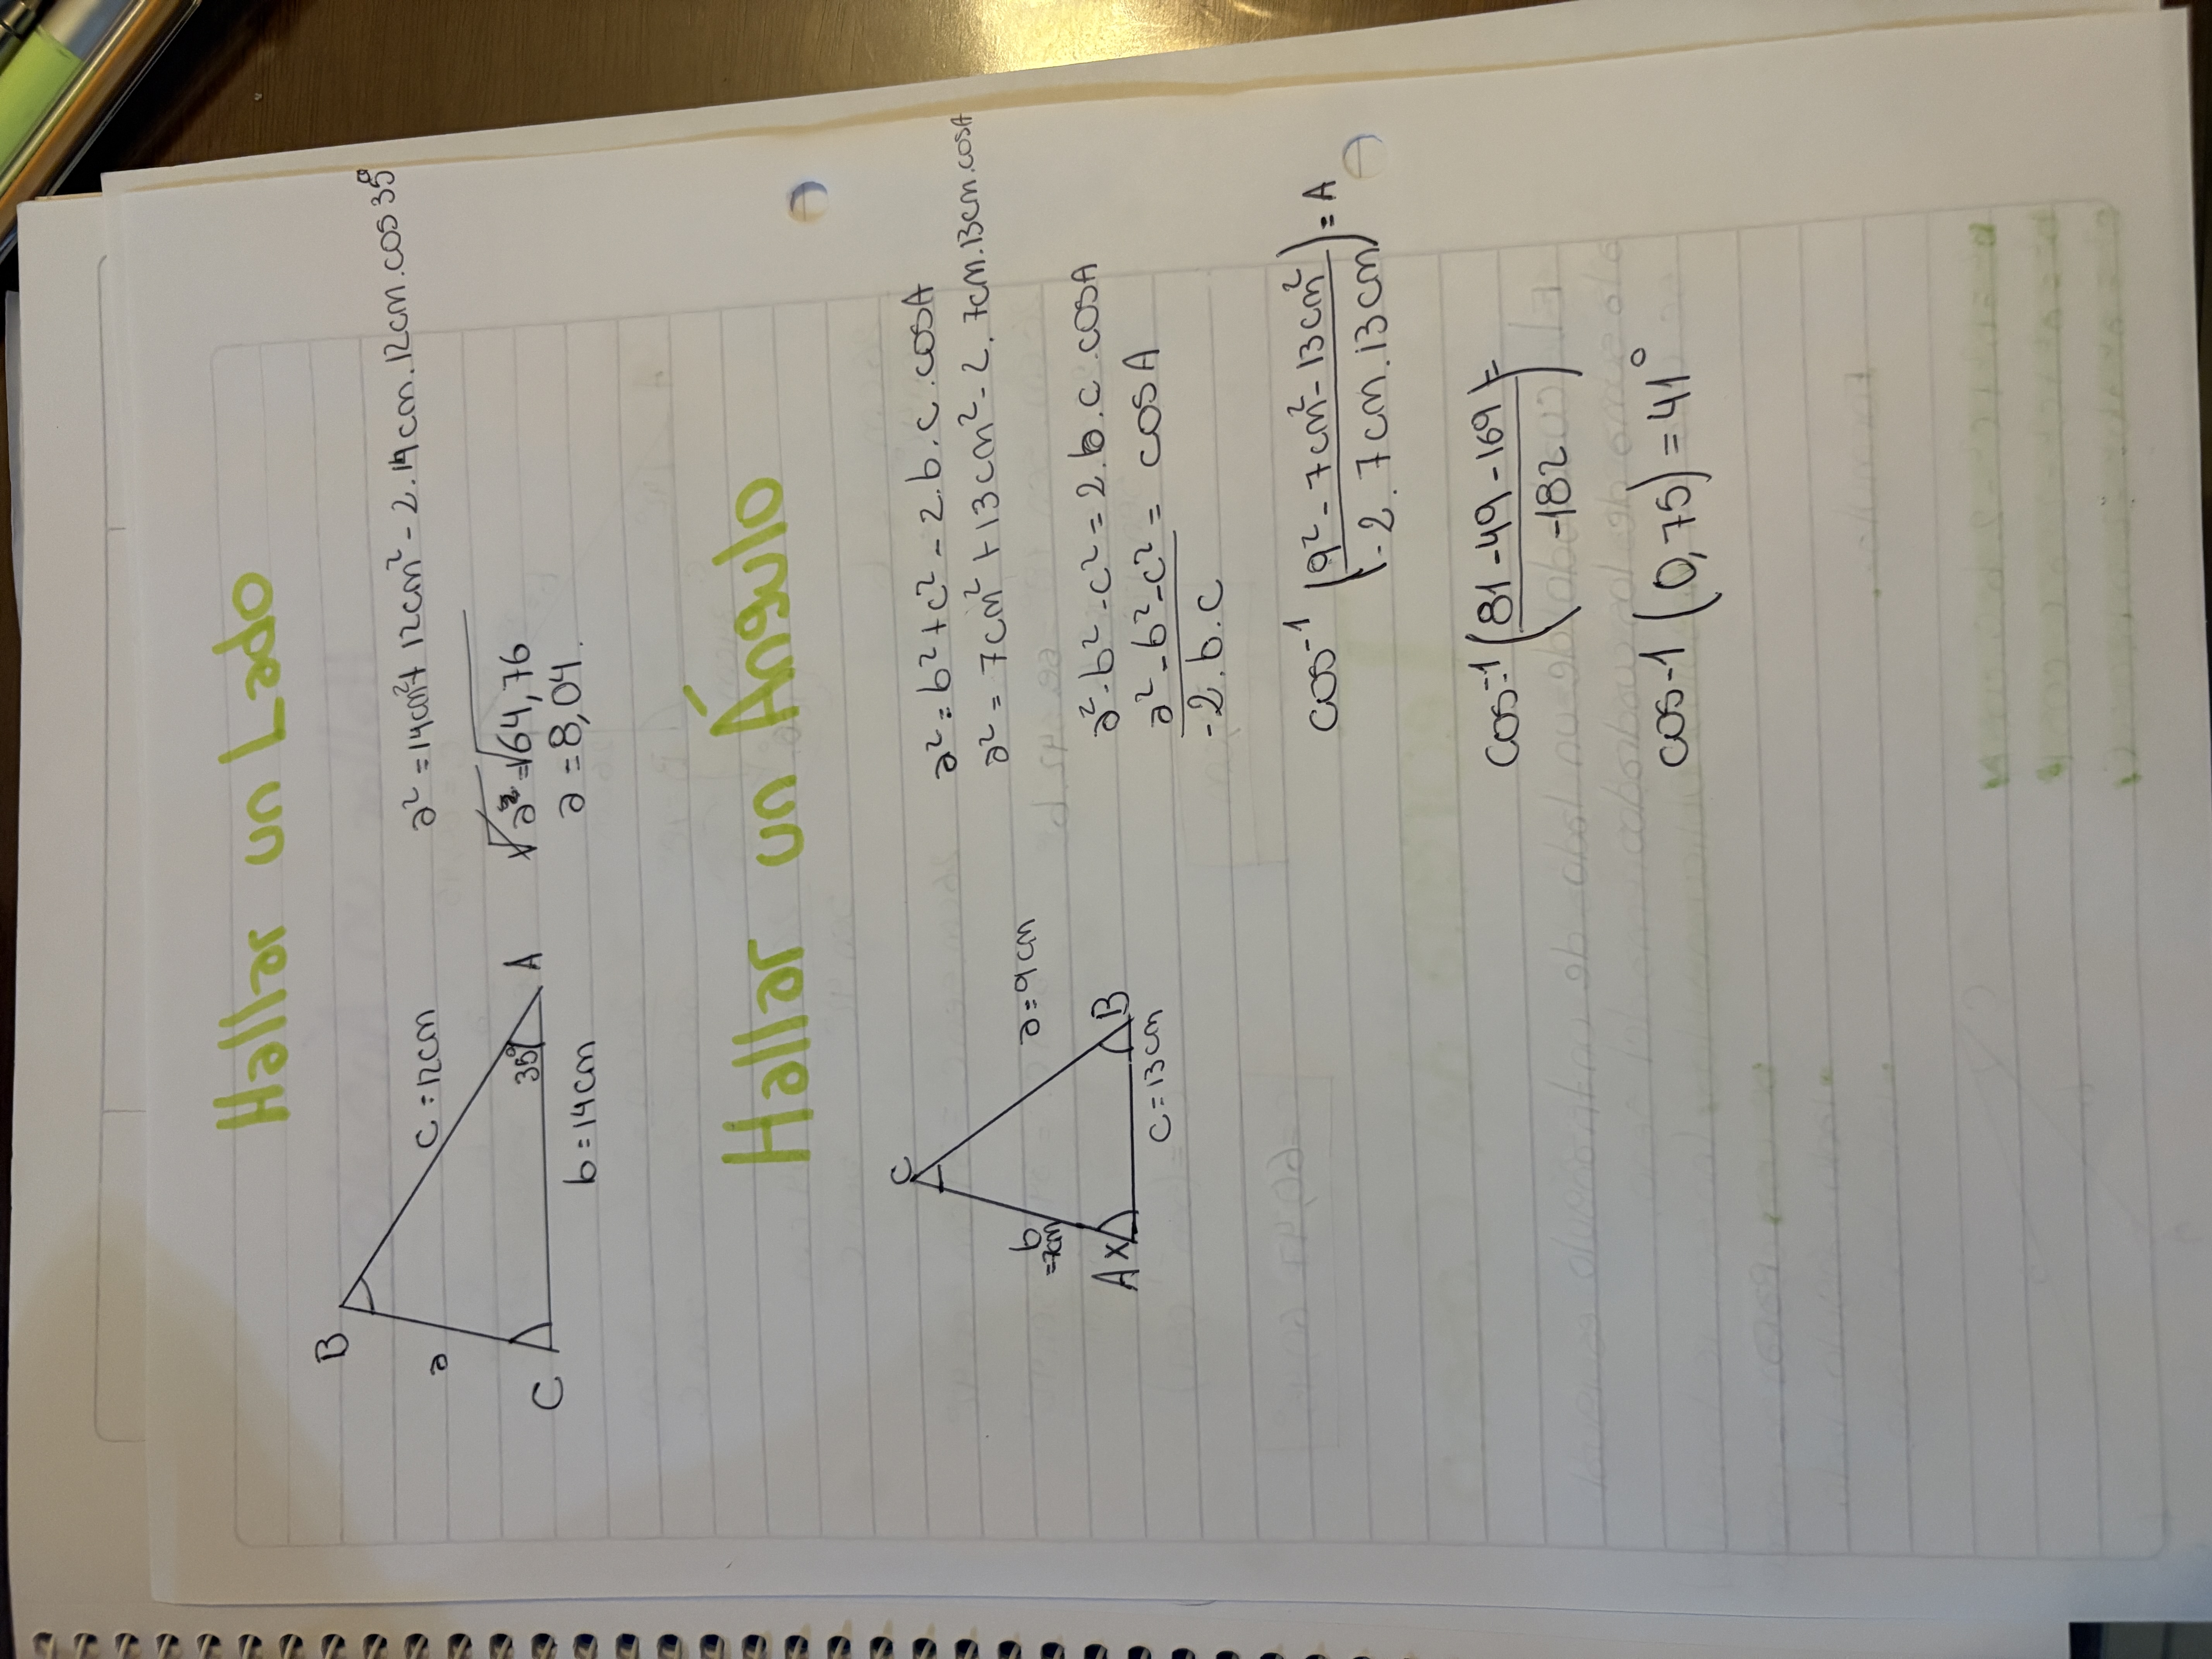 Hallar un Lado
B
c=12cm
a
35°
A
C
b=14cm
a²=14cm²+12cm²-2.14cm.12cm.cos35°
√a²=√64,76
a=8,04.
Hallar un Ángulo
C
b=7cm
a=9cm
A x
B
c=13cm
a²=b²+c²-2.b.c.cosA
a²=7cm²+13cm²-2.7cm.13cm.cosA
a²-b²-c²=2.b.c.cosA
a²-b²-c²=cosA
-2.b.c
cos⁻¹(9²-7cm²-13cm²)=A
-2.7cm.13cm
cos⁻¹(81-49-169)=
-182
cos-1(0,75)=41°